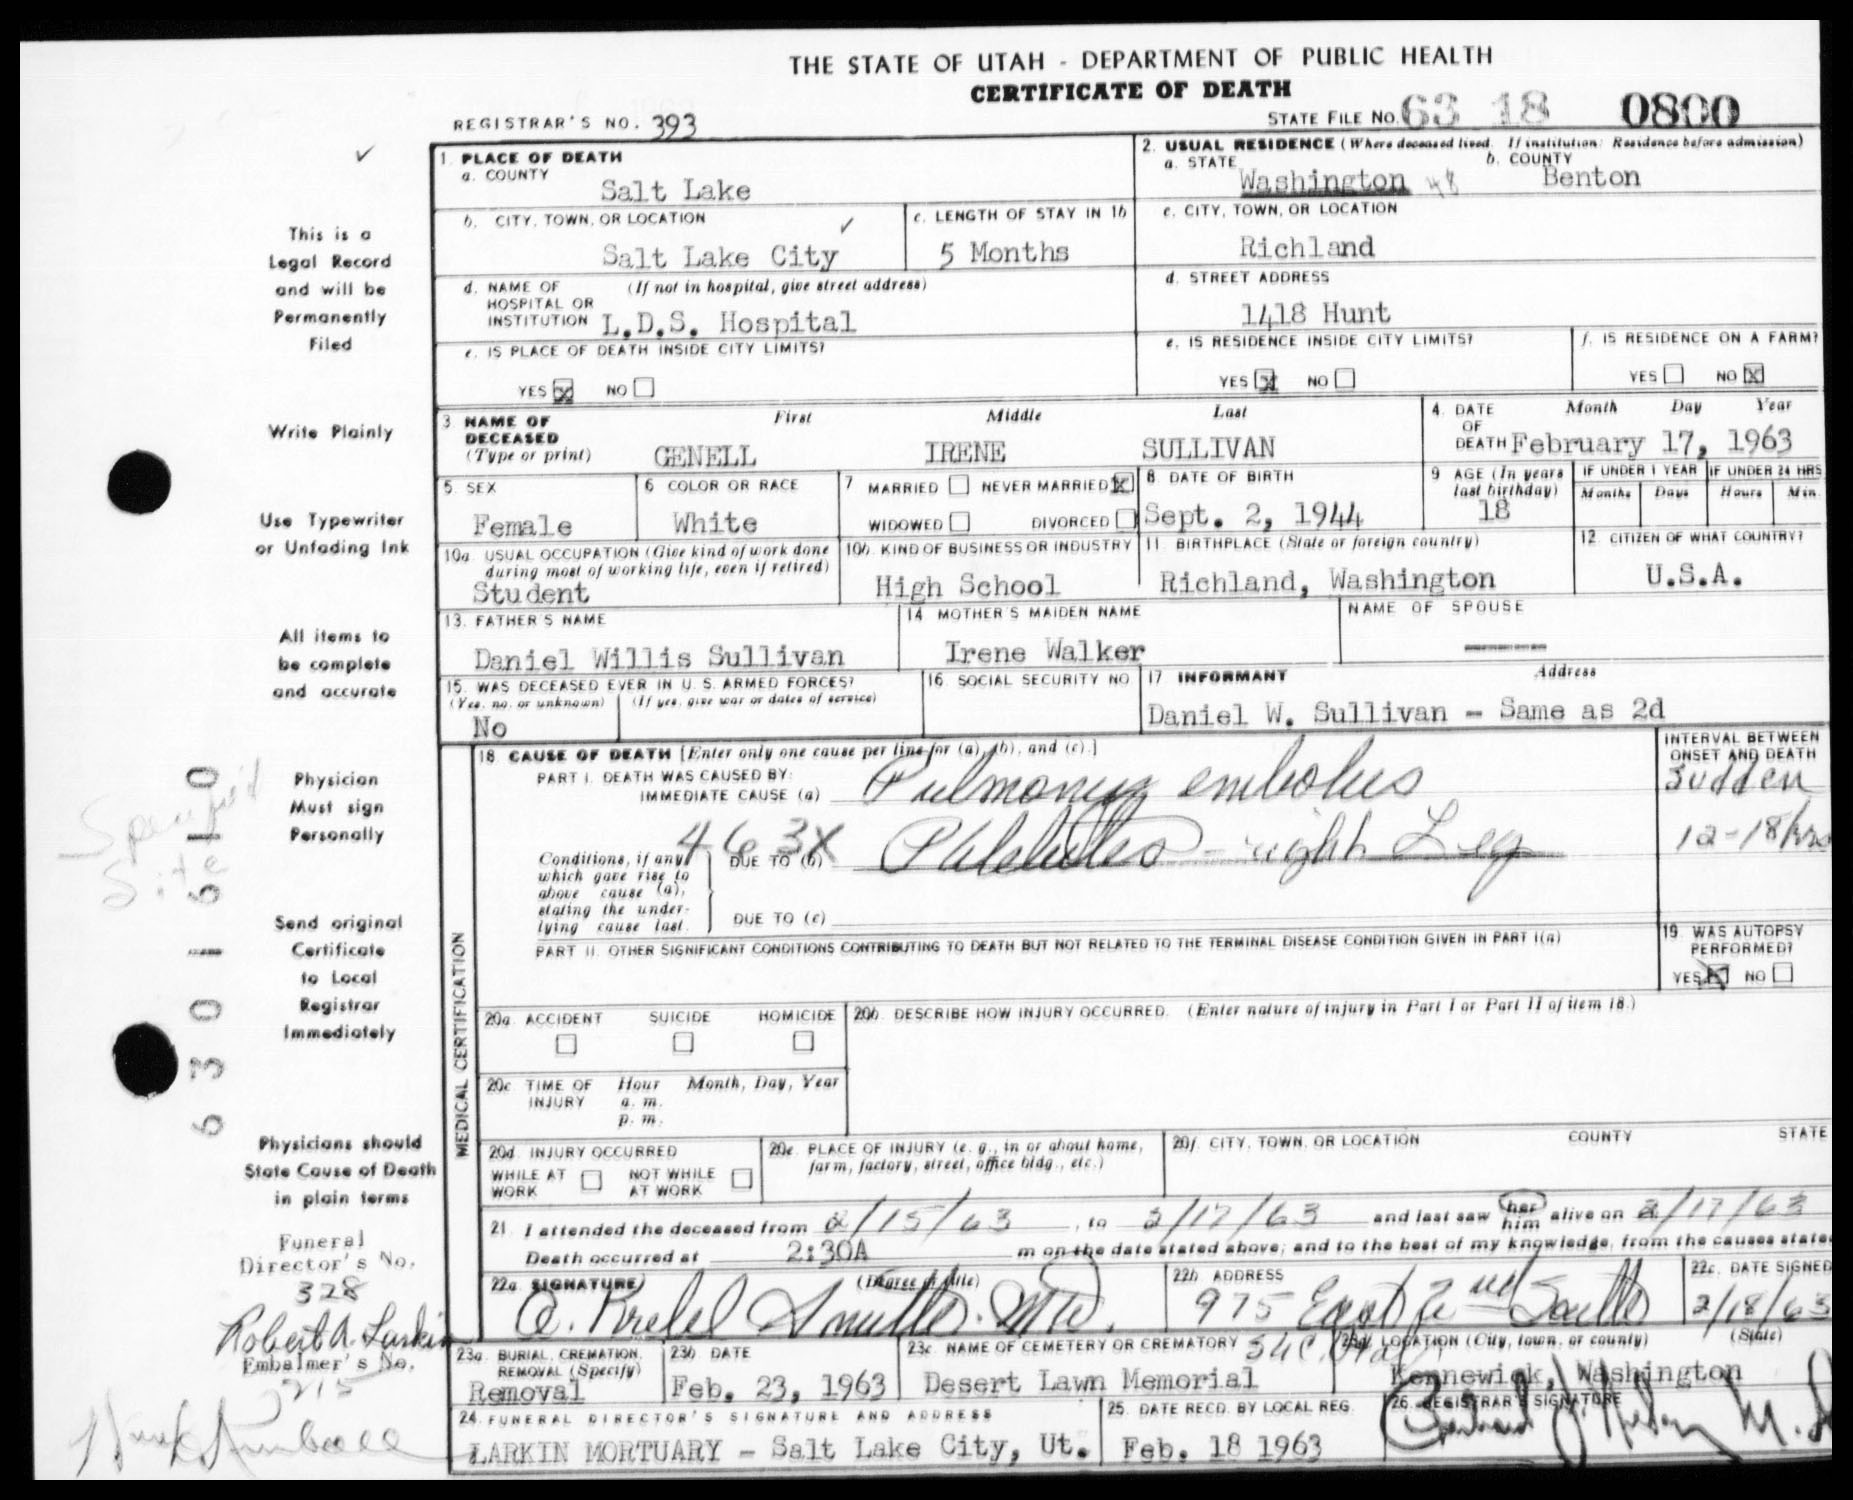 THE STATE OF UTAH - DEPARTMENT OF PUBLIC HEALTH
CERTIFICATE OF DEATH
REGISTRAR'S NO. 393
STATE FILE NO. 63 18 0800
1. PLACE OF DEATH
a. COUNTY
Salt Lake
2. USUAL RESIDENCE (Where deceased lived. If institution: Residence before admission)
a. STATE
Washington 48
b. COUNTY
Benton
b. CITY, TOWN, OR LOCATION
Salt Lake City
c. LENGTH OF STAY IN 1b
5 Months
c. CITY, TOWN, OR LOCATION
Richland
d. NAME OF HOSPITAL OR INSTITUTION
(If not in hospital, give street address)
L.D.S. Hospital
d. STREET ADDRESS
1418 Hunt
e. IS PLACE OF DEATH INSIDE CITY LIMITS?
YES X NO
e. IS RESIDENCE INSIDE CITY LIMITS?
YES X NO
f. IS RESIDENCE ON A FARM?
YES NO X
3 NAME OF DECEASED
(Type or print)
First Middle Last
GENELL IRENE SULLIVAN
4. DATE OF DEATH
Month Day Year
February 17, 1963
5. SEX
Female
6 COLOR OR RACE
White
7 MARRIED NEVER MARRIED X
WIDOWED DIVORCED
8 DATE OF BIRTH
Sept. 2, 1944
9 AGE (In years last birthday)
18
IF UNDER 1 YEAR
Months Days
IF UNDER 24 HRS
Hours Min.
10a. USUAL OCCUPATION (Give kind of work done during most of working life, even if retired)
Student
10b. KIND OF BUSINESS OR INDUSTRY
High School
11. BIRTHPLACE (State or foreign country)
Richland, Washington
12. CITIZEN OF WHAT COUNTRY?
U.S.A.
13. FATHER'S NAME
Daniel Willis Sullivan
14 MOTHER'S MAIDEN NAME
Irene Walker
NAME OF SPOUSE
15. WAS DECEASED EVER IN U. S. ARMED FORCES?
(Yes, no, or unknown) (If yes, give war or dates of service)
No
16. SOCIAL SECURITY NO
17 INFORMANT Address
Daniel W. Sullivan - Same as 2d
MEDICAL CERTIFICATION
18 CAUSE OF DEATH [Enter only one cause per line for (a), (b), and (c).]
INTERVAL BETWEEN ONSET AND DEATH
PART I. DEATH WAS CAUSED BY:
IMMEDIATE CAUSE (a) Pulmonary embolus
Sudden
463X
Conditions, if any, which gave rise to above cause (a), stating the under-lying cause last.
DUE TO (b) Phlebitis - right Leg
12-18 hrs
DUE TO (c)
PART II. OTHER SIGNIFICANT CONDITIONS CONTRIBUTING TO DEATH BUT NOT RELATED TO THE TERMINAL DISEASE CONDITION GIVEN IN PART I(a)
19. WAS AUTOPSY PERFORMED?
YES X NO
20a. ACCIDENT SUICIDE HOMICIDE
20b. DESCRIBE HOW INJURY OCCURRED. (Enter nature of injury in Part I or Part II of item 18.)
20c. TIME OF INJURY
Hour Month, Day, Year
a. m.
p. m.
20d. INJURY OCCURRED
WHILE AT WORK NOT WHILE AT WORK
20e. PLACE OF INJURY (e. g., in or about home, farm, factory, street, office bldg., etc.)
20f. CITY, TOWN, OR LOCATION COUNTY STATE
21. I attended the deceased from 2/15/63, to 2/17/63 and last saw her him alive on 2/17/63
Death occurred at 2:30A m on the date stated above; and to the best of my knowledge, from the causes state
22a. SIGNATURE (Degree or title)
M.D.
22b. ADDRESS
975 East 2nd South
SLC, Utah
22c. DATE SIGNED
2/18/63
23a. BURIAL, CREMATION, REMOVAL (Specify)
Removal
23b DATE
Feb. 23, 1963
23c. NAME OF CEMETERY OR CREMATORY
Desert Lawn Memorial
23d. LOCATION (City, town, or county) (State)
Kennewick, Washington
24. FUNERAL DIRECTOR'S SIGNATURE AND ADDRESS
LARKIN MORTUARY - Salt Lake City, Ut.
25. DATE RECD. BY LOCAL REG.
Feb. 18 1963
26. REGISTRAR'S SIGNATURE
This is a
Legal Record
and will be
Permanently
Filed
Write Plainly
Use Typewriter
or Unfading Ink
All items to
be complete
and accurate
Physician
Must sign
Personally
Send original
Certificate
to Local
Registrar
Immediately
Physicians should
State Cause of Death
in plain terms
Funeral
Director's No.
328
Robert A. Larkin
Embalmer's No.
215
6301610